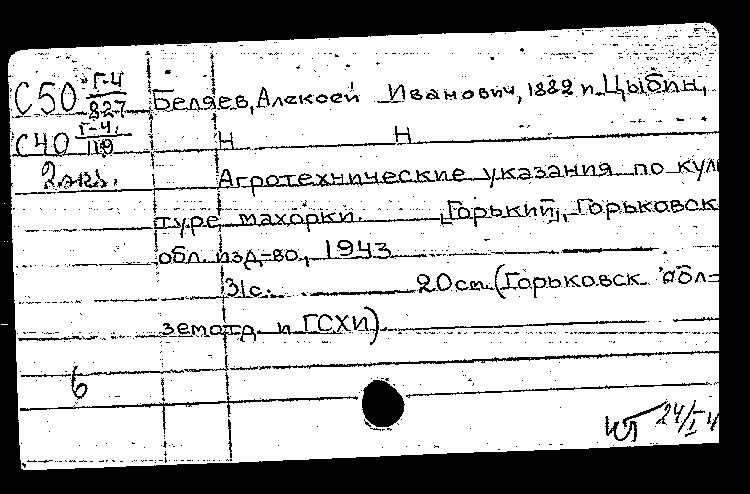 С50 Г-4/827 Беляев, Алексей Иванович, 1882 и Цыбин,
С40 Г-4/119 Н Н
2 экз. Агротехнические указания по куль
туре махорки. [Горький], Горьковск
обл. изд-во, 1943
31с. 20см. (Горьковск обл-
земотд и ГСХИ)
6
24/I